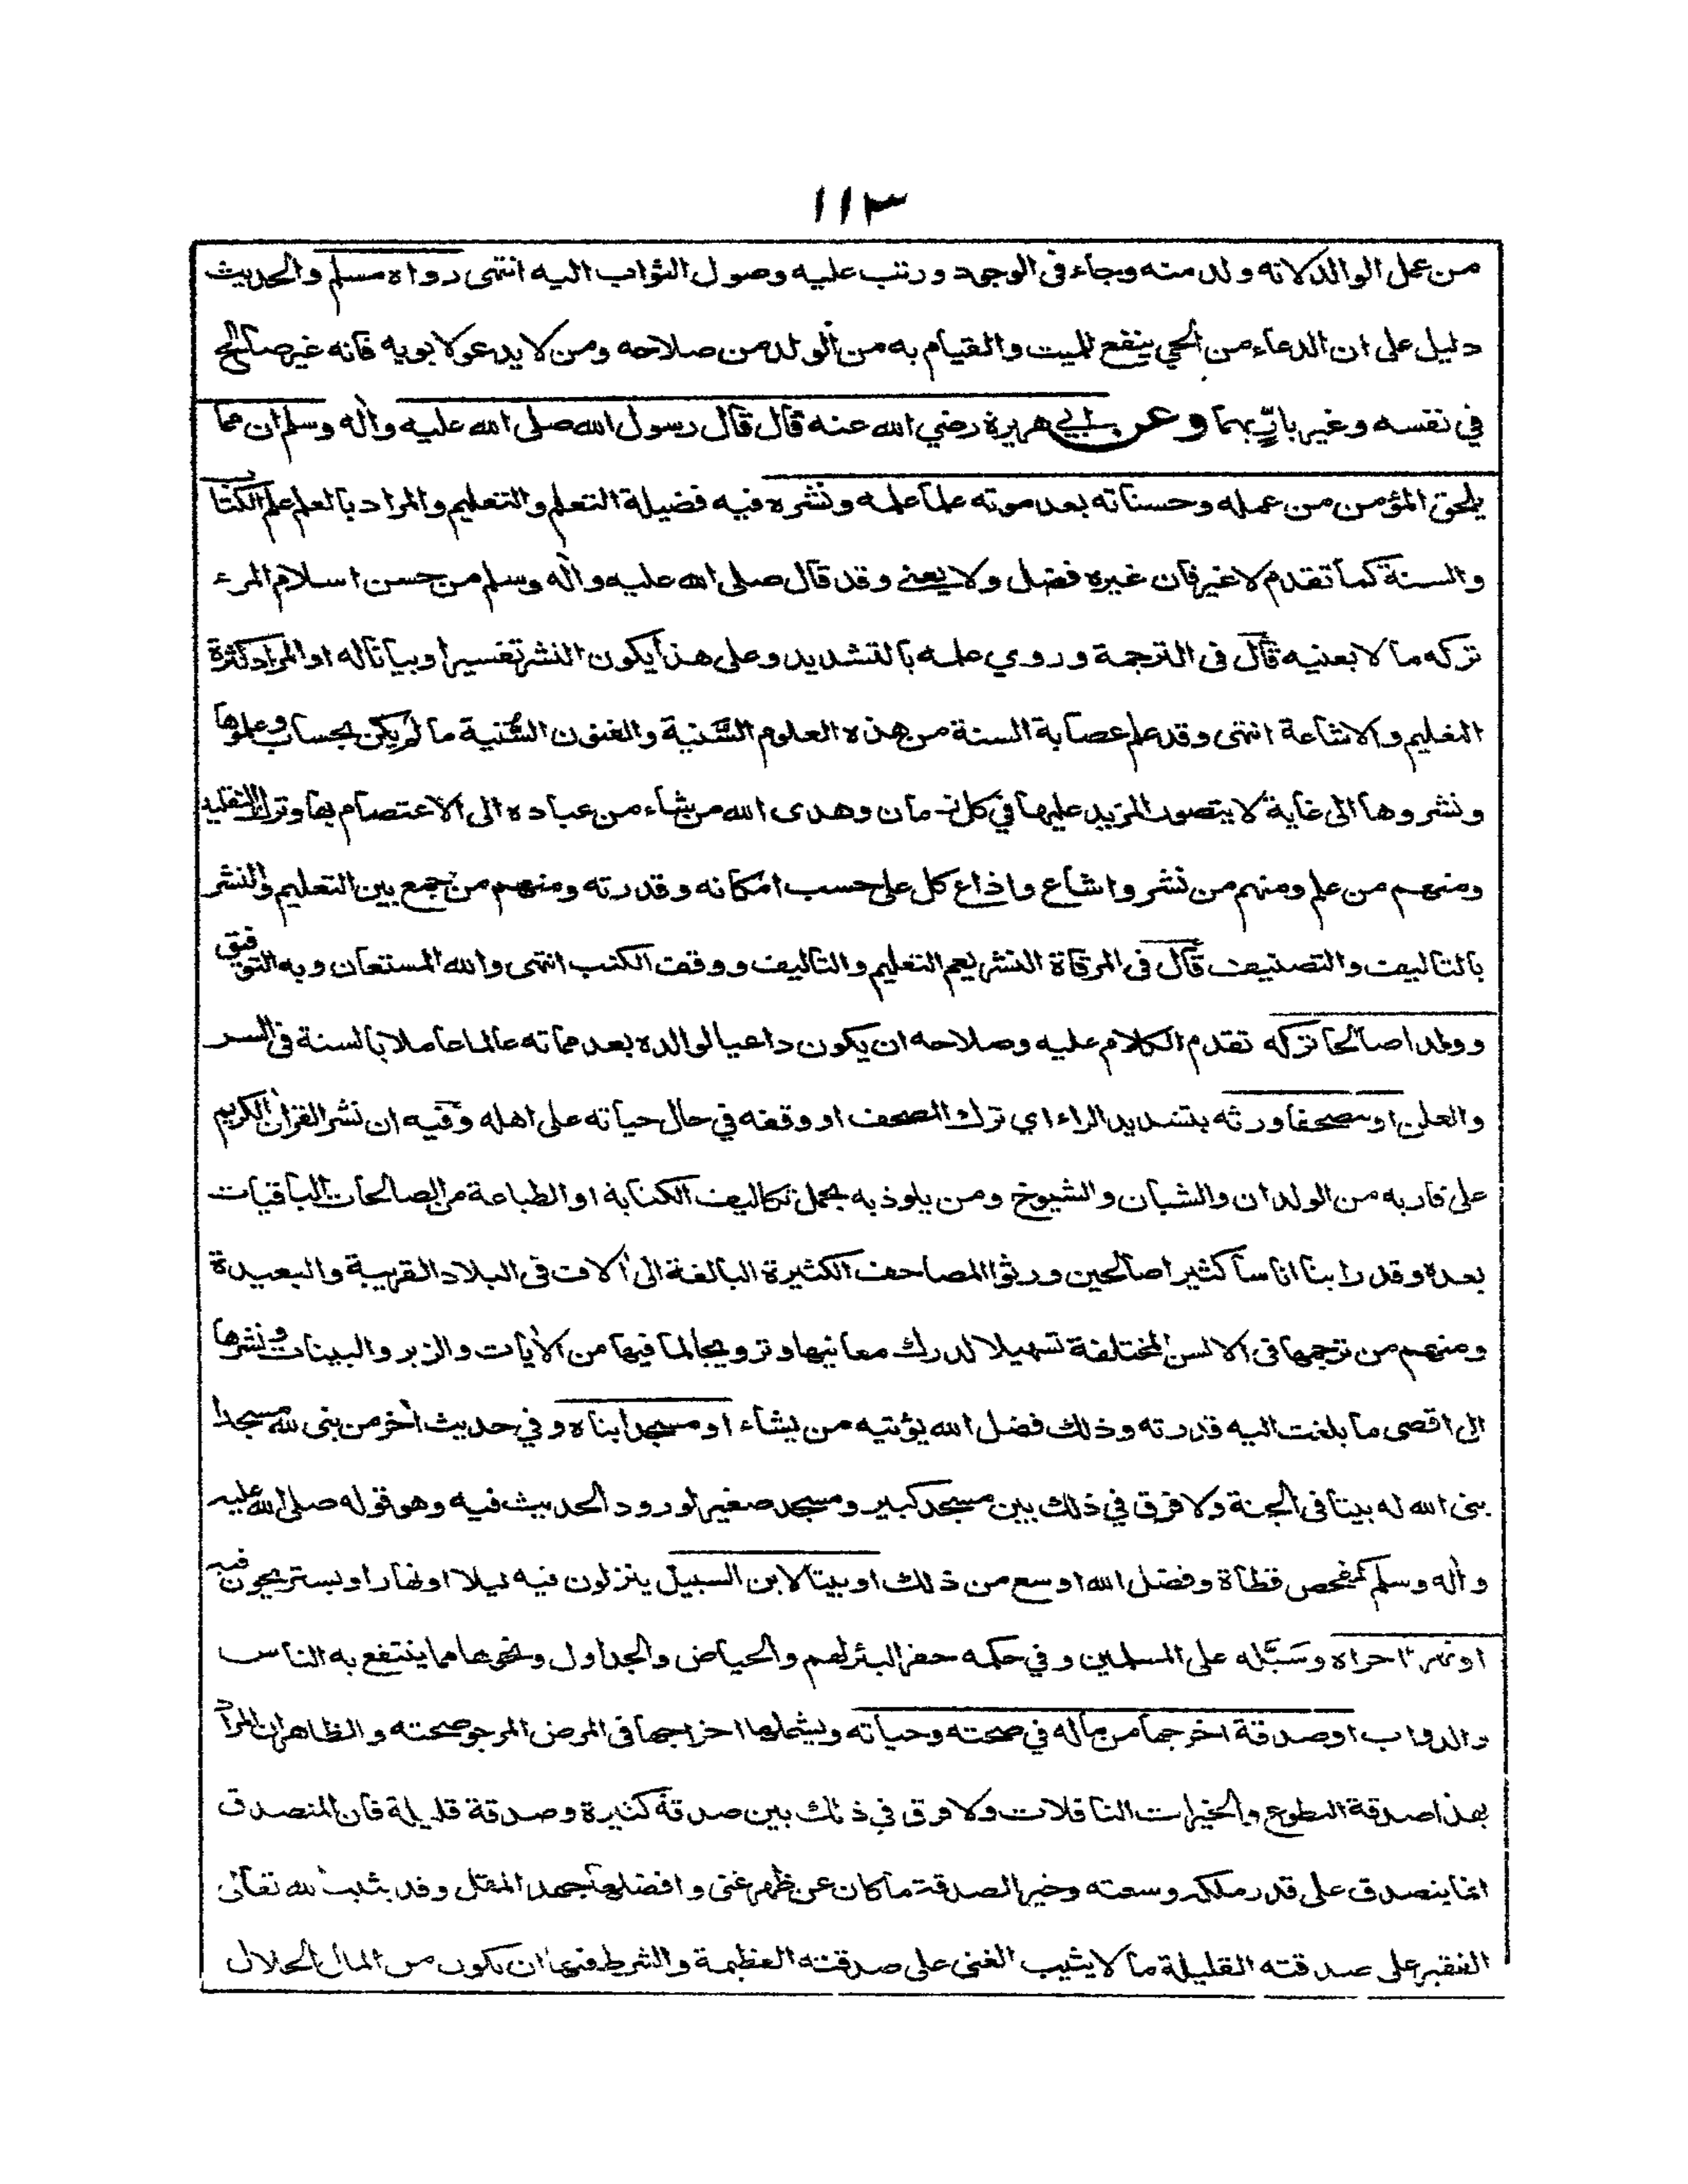 ١١٣
من عمل الوالد لانه ولد منه وجاء فى الوجود ورتب عليه وصول الثواب اليه انتهى رواه مسلم والحديث
دليل على ان الدعاء من الحي ينفع للميت والقيام به من الولد من صلاحه ومن لا يدعو لابويه فانه غير صالح
في نفسه وغير بارٍّ بهما وعن ابي هريرة رضي الله عنه قال قال رسول الله صلى الله عليه واٰله وسلم ان مما
يلحق المؤمن من عمله وحسناته بعد موته علما علمه ونشره فيه فضيلة التعلم والتعليم والمراد بالعلم علم الكتاب
والسنة كما تقدم لا غير فان غيره فضل ولا يعنى وقد قال صلى الله عليه واٰله وسلم من حسن اسلام المرء
تركه ما لا يعنيه قال فى الترجمة وروي علمه بالتشديد وعلى هذا يكون النشر تفسيرا وبيانا له او المراد كثرة
التعليم والاشاعة انتهى وقد علم عصابة السنة من هذه العلوم السَّنية والفنون السُّنية ما لم يكن بحساب وعلموها
ونشروها الى غاية لا يتصور المزيد عليها في كل زمان وهدى الله من يشاء من عباده الى الاعتصام بها وترك التقليد
ومنهم من علم ومنهم من نشر واشاع واذاع كل على حسب امكانه وقدرته ومنهم من جمع بين التعليم والنشر
بالتاليف والتصنيف قال فى المرقاة النشر يعم التعليم والتاليف ووقف الكتب انتهى والله المستعان وبه التوفيق
وولدا صالحا تركه تقدم الكلام عليه وصلاحه ان يكون داعيا لوالده بعد مماته عالما عاملا بالسنة فى السر
والعلن او مصحفا ورثه بتشديد الراء اي ترك المصحف او وقفه في حال حياته على اهله وفيه ان نشر القراٰن الكريم
على قاربه من الولدان والشبان والشيوخ ومن يلوذ به بحمل تكاليف الكتابة او الطباعة من الصالحات الباقيات
بعده وقد راينا اناسا كثيرا صالحين ورثوا المصاحف الكثيرة البالغة الى اٰلاف فى البلاد القريبة والبعيدة
ومنهم من ترجمها فى الالسن المختلفة تسهيلا لدرك معانيها وترويجا لما فيها من الاٰيات والزبر والبينات ونشرها
الى اقصى ما بلغت اليه قدرته وذلك فضل الله يؤتيه من يشاء او مسجدا بناه وفي حديث اٰخر من بنى لله مسجدا
بنى الله له بيتا فى الجنة ولا فرق في ذلك بين مسجد كبير ومسجد صغير لورود الحديث فيه وهو قوله صلى الله عليه
واٰله وسلم كمفحص قطاة وفضل الله اوسع من ذلك او بيتا لابن السبيل ينزلون فيه ليلا او نهارا ويستريحون فيه
او نهرا اجراه وسَبَّله على المسلمين وفي حكمه حفر البئر لهم والحياض والجداول ونحوها مما ينتفع به الناس
والدواب او صدقة اخرجها من ماله في صحته وحياته ويشملها اخراجها فى المرض المرجو صحته والظاهر ان المراد
بهذا صدقة التطوع والخيرات النافلات ولا فرق في ذلك بين صدقة كثيرة وصدقة قليلة فان المتصدق
انما يتصدق على قدر ملكه وسعته وخير الصدقة ما كان عن ظهر غنى وافضلها جهد المقل وقد يثيب الله تعالى
الفقير على صدقته القليلة ما لا يثيب الغنى على صدقته العظيمة والشرط فيها ان تكون من المال الحلال